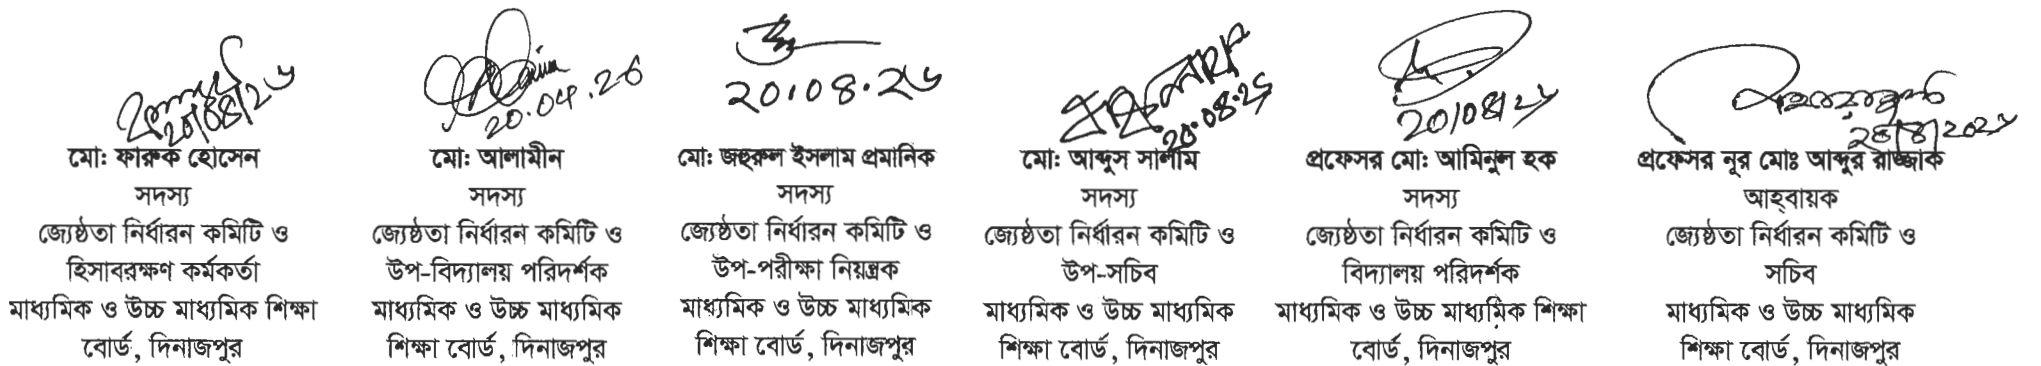 20.04.26
20.08.26
মো: ফারুক হোসেন
সদস্য
জ্যেষ্ঠতা নির্ধারন কমিটি ও
হিসাবরক্ষণ কর্মকর্তা
মাধ্যমিক ও উচ্চ মাধ্যমিক শিক্ষা
বোর্ড, দিনাজপুর
মো: আলামীন
সদস্য
জ্যেষ্ঠতা নির্ধারন কমিটি ও
উপ-বিদ্যালয় পরিদর্শক
মাধ্যমিক ও উচ্চ মাধ্যমিক
শিক্ষা বোর্ড, দিনাজপুর
মো: জহুরুল ইসলাম প্রমানিক
সদস্য
জ্যেষ্ঠতা নির্ধারন কমিটি ও
উপ-পরীক্ষা নিয়ন্ত্রক
মাধ্যমিক ও উচ্চ মাধ্যমিক
শিক্ষা বোর্ড, দিনাজপুর
মো: আব্দুস সালাম
সদস্য
জ্যেষ্ঠতা নির্ধারন কমিটি ও
উপ-সচিব
মাধ্যমিক ও উচ্চ মাধ্যমিক
শিক্ষা বোর্ড, দিনাজপুর
প্রফেসর মো: আমিনুল হক
সদস্য
জ্যেষ্ঠতা নির্ধারন কমিটি ও
বিদ্যালয় পরিদর্শক
মাধ্যমিক ও উচ্চ মাধ্যমিক শিক্ষা
বোর্ড, দিনাজপুর
প্রফেসর নূর মোঃ আব্দুর রাজ্জাক
আহ্‌বায়ক
জ্যেষ্ঠতা নির্ধারন কমিটি ও
সচিব
মাধ্যমিক ও উচ্চ মাধ্যমিক
শিক্ষা বোর্ড, দিনাজপুর